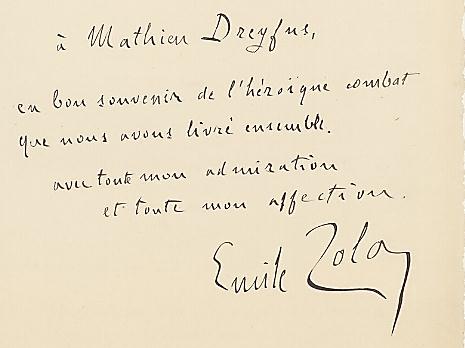 à Mathieu Dreyfus,
en bon souvenir de l'héroïque combat
que nous avons livré ensemble.
avec toute mon admiration
et toute mon affection.
Emile Zola